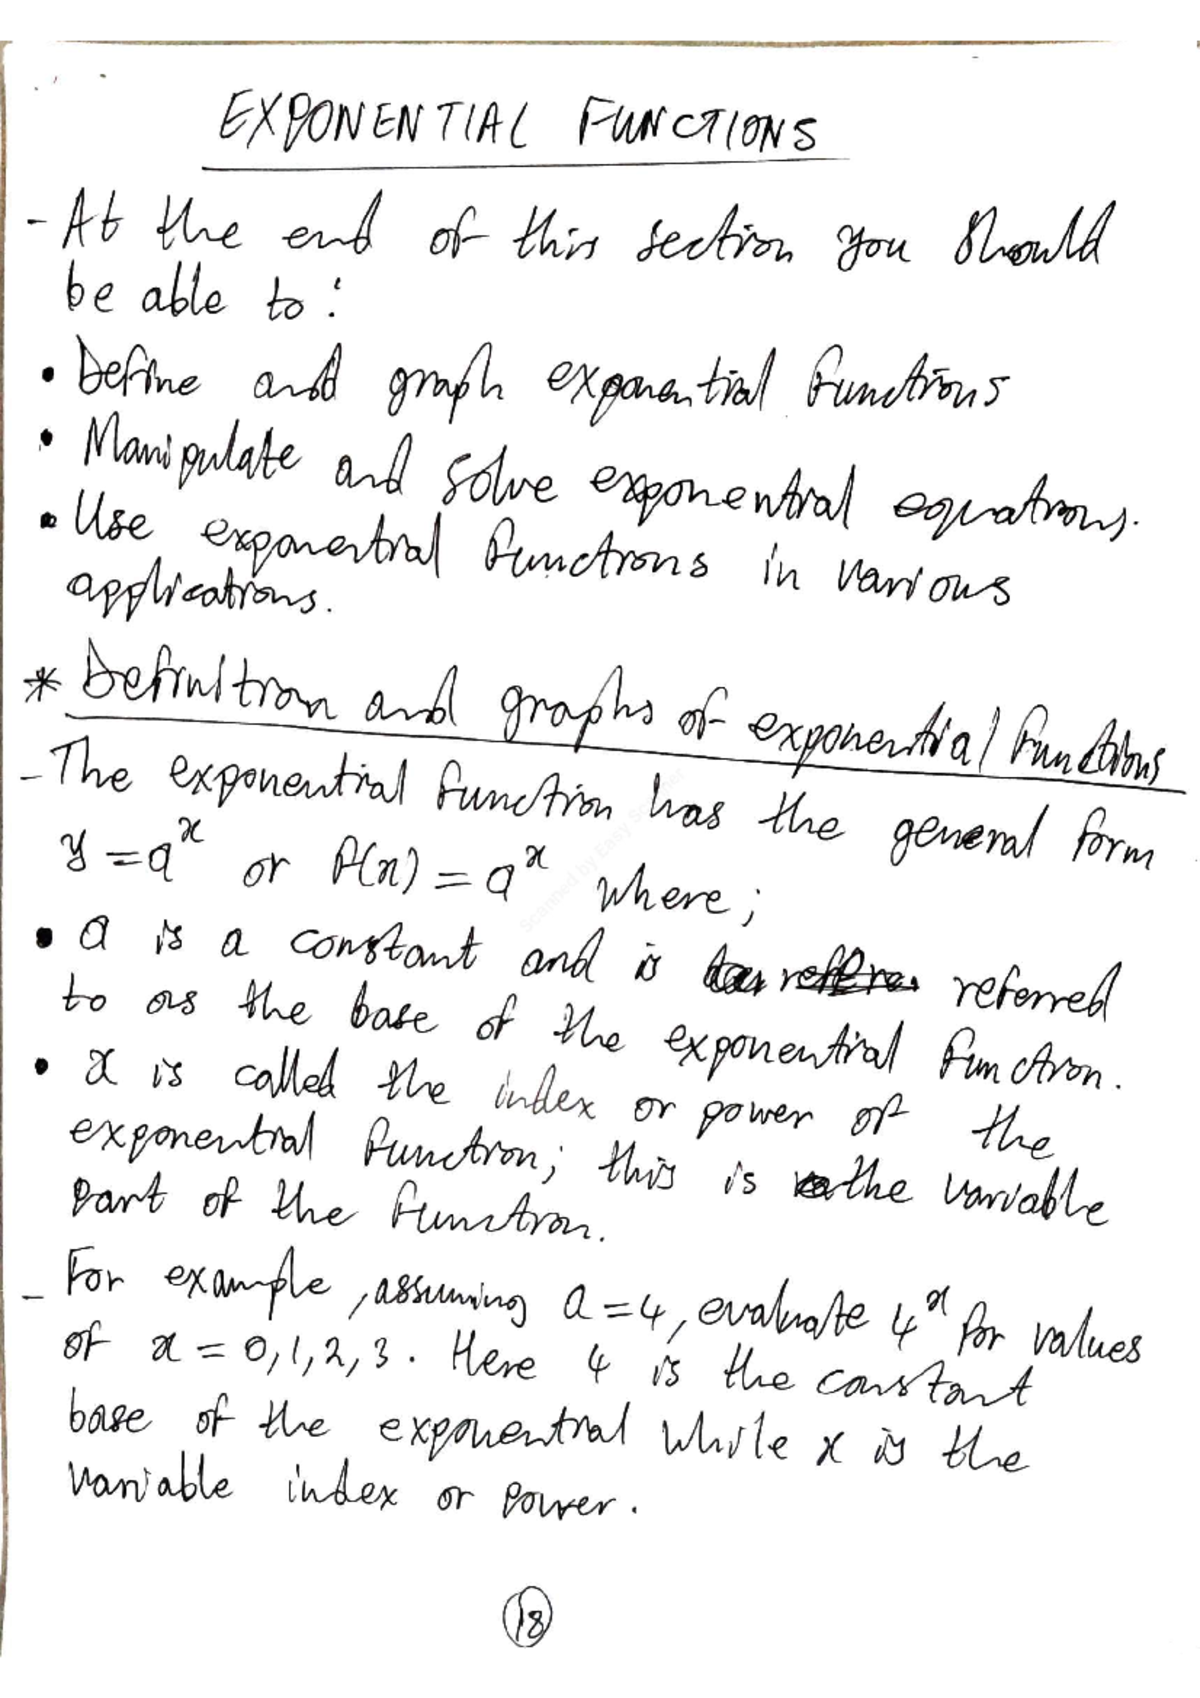 EXPONENTIAL FUNCTIONS
- At the end of this section you should
be able to:
• Define and graph exponential functions
• Manipulate and solve exponential equations.
• Use exponential functions in various
applications.
* Definition and graphs of exponential functions
- The exponential function has the general form
y = a^x or f(x) = a^x where;
• a is a constant and is referred
to as the base of the exponential function.
• x is called the index or power of the
exponential function; this is the variable
part of the function.
- For example, assuming a = 4, evaluate 4^x for values
of x = 0, 1, 2, 3. Here 4 is the constant
base of the exponential while x is the
variable index or power.
18
Scanned by Easy Scanner